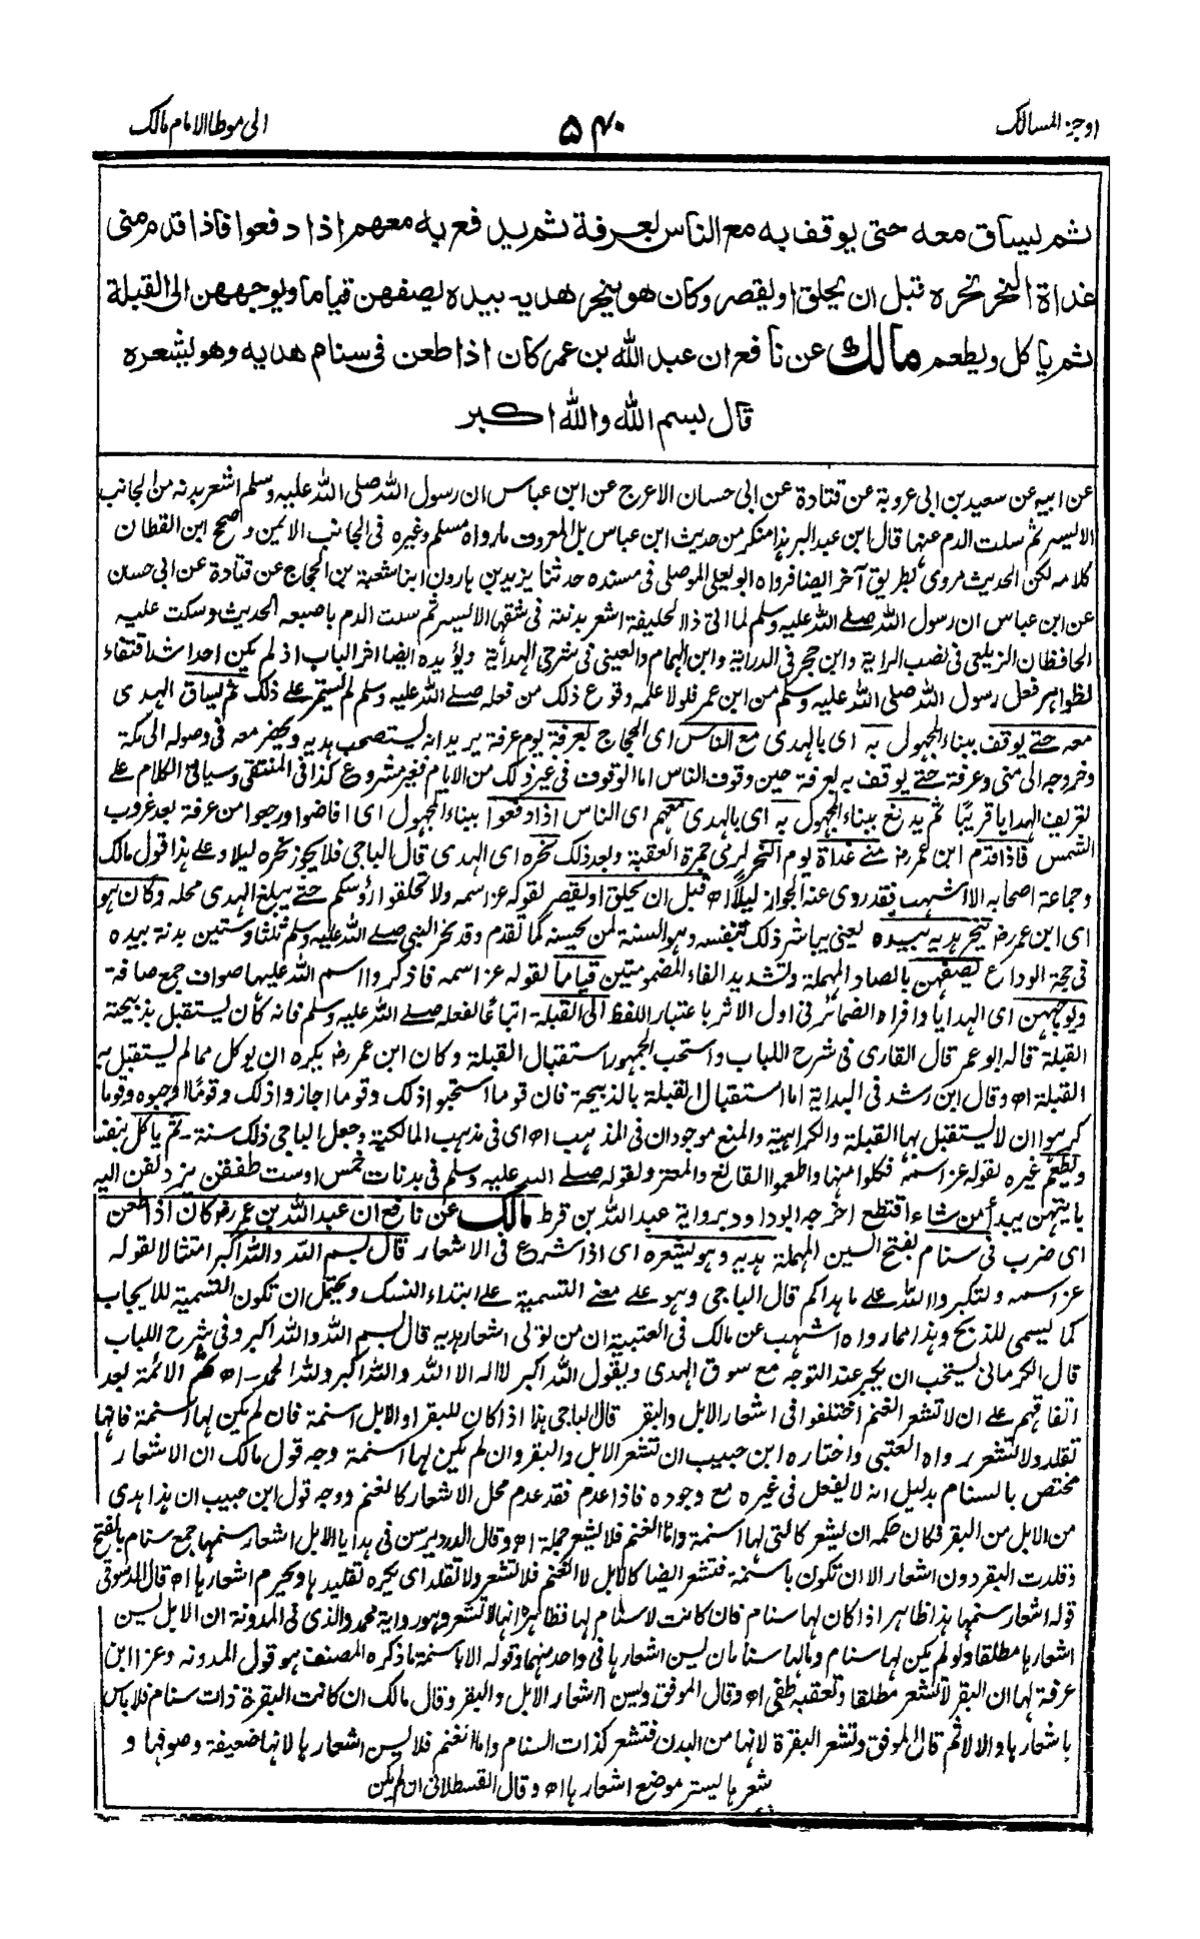 اوجز المسالك
٥٤٠
الى موطا الامام مالك
ثم يساق معه حتى يوقف به مع الناس بعرفة ثم يدفع به معهم اذا دفعوا فاذا قدم منى
غداة النحر نحره قبل ان يحلق او يقصر وكان هو ينحر هديه بيده يصفهن قياما ويوجههن الى القبلة
ثم يأكل ويطعم مالك عن نافع ان عبد الله بن عمر كان اذا طعن فى سنام هديه وهو يشعره
قال بسم الله والله اكبر
عن ابيه عن سعيد بن ابى عروبة عن قتادة عن ابى حسان الاعرج عن ابن عباس ان رسول الله صلى الله عليه وسلم اشعر بدنه من الجانب
الايسر ثم سلت الدم عنها قال ابن عبد البر هذا منكر من حديث ابن عباس بل المعروف مارواه مسلم وغيره فى الجانب الايمن وصحح ابن القطان
كلامه لكن الحديث مروى بطريق آخر ايضا فرواه ابو يعلى الموصلى فى مسنده حدثنا يزيد بن هارون انبا شعبة بن الحجاج عن قتادة عن ابى حسان
عن ابن عباس ان رسول الله صلى الله عليه وسلم لما اتى ذا الحليفة اشعر بدنته فى شقها الايسر ثم سلت الدم باصبعه الحديث وسكت عليه
الحافظان الزيلعى فى نصب الراية وابن حجر فى الدراية وابن الهمام والعينى فى شرحى الهداية ويؤيده ايضا اخر الباب اذ لم يكن احد اشد اقتفاء
لظواهر فعل رسول الله صلى الله عليه وسلم من ابن عمر فلولا علمه وقوع ذلك من فعله صلى الله عليه وسلم لم يستمر على ذلك ثم يساق الهدى
معه حتى يوقف ببناء المجهول به اى بالهدى مع الناس اى الحجاج بعرفة يوم عرفة يريد انه يستصحب هديه ويحضر معه فى وصوله الى مكة
وخروجه الى منى وعرفة حتى يوقف به بعرفة حين وقوف الناس اما الوقوف فى غير ذلك من الايام فغير مشروع كذا فى المنتقى وسياتى الكلام على
تعريف الهدايا قريبًا ثم يدفع ببناء المجهول به اى بالهدى معهم اى الناس اذا دفعوا ببناء المجهول اى افاضوا ورجعوا من عرفة بعد غروب
الشمس فاذا قدم ابن عمر رض منى غداة يوم النحر لرمى جمرة العقبة وبعد ذلك نحره اى الهدى قال الباجى فلا يجوز نحره ليلا وعلى هذا قول مالك
وجماعة اصحابه الا اشهب فقد روى عنه الجواز ليلًا اھ قبل ان يحلق او يقصر لقوله عز اسمه ولا تحلقوا رؤسكم حتى يبلغ الهدى محله وكان هو
اى ابن عمر رض ينحر هديه بيده يعنى يباشر ذلك بنفسه وهو السنة لمن يحسنه كما تقدم وقد نحر النبى صلى الله عليه وسلم ثلثا وستين بدنة بيده
فى حجة الوداع يصفهن بالصاد المهملة وتشديد الفاء المضمومتين قياما لقوله عز اسمه فاذكروا اسم الله عليها صواف جمع صافة
ويوجههن اى الهدايا وافراد الضمائر فى اول الاثر باعتبار اللفظ الى القبلة اتباعا لفعله صلى الله عليه وسلم فانه كان يستقبل بذبيحته
القبلة قاله ابو عمر قال القارى فى شرح اللباب واستحب الجمهور استقبال القبلة وكان ابن عمر رض يكره ان يوكل مما لم يستقبل به
القبلة اھ وقال ابن رشد فى البداية اما استقبال القبلة بالذبيحة فان قوما استحبوا ذلك وقوما اجازوا ذلك وقومًا اوجبوه وقوما
كرهوا ان لا يستقبل بها القبلة والكراهية والمنع موجودان فى المذهب اھ اى فى مذهب المالكية وجعل الباجى ذلك سنة ثم ياكل بنفسه
ويطعم غيره لقوله عز اسمه فكلوا منها واطعموا القانع والمعتر ولقوله صلى الله عليه وسلم فى بدنات خمس او ست طفقن يزدلفن اليه
بايتهن يبدأ من شاء اقتطع اخرجه ابو داود برواية عبد الله بن قرط مالك عن نافع ان عبد الله بن عمر رض كان اذا طعن
اى ضرب فى سنام بفتح السين المهملة هديه وهو يشعره اى اذا شرع فى الاشعار قال بسم الله والله اكبر امتثالا لقوله
عز اسمه ولتكبروا الله على ما هداكم قال الباجى وهو على معنى التسمية على ابتداء النسك ويحتمل ان تكون التسمية للايجاب
كما يسمى للذبح وهذا مما رواه اشهب عن مالك فى العتبية ان من تولى اشعار هديه قال بسم الله والله اكبر وفى شرح اللباب
قال الكرمانى يستحب ان يكبر عند التوجه مع سوق الهدى ويقول الله اكبر لا اله الا الله والله اكبر ولله الحمد اھ ثم الائمة بعد
اتفاقهم على ان لا تشعر الغنم اختلفوا فى اشعار الابل والبقر قال الباجى هذا اذا كان للبقر او الابل اسنمة فان لم يكن لها اسنمة فانها
تقلد ولا تشعر رواه العتبى واختاره ابن حبيب ان تشعر الابل والبقر وان لم يكن لها اسنمة وجه قول مالك ان الاشعار
مختص بالسنام بدليل انه لا يفعل فى غيره مع وجوده فاذا عدم فقد عدم محل الاشعار كالغنم ووجه قول ابن حبيب ان هذا هدى
من الابل من البقر فكان حكمه ان يشعر كالتى لها اسنمة واما الغنم فلا يشعر جملة اھ وقال الدردير سن فى هدايا الابل اشعار سنمها جمع سنام بالفتح
وقلدت البقر دون اشعار الا ان تكون باسنمة فتشعر ايضا كالابل لا الغنم فلا تشعر ولا تقلد اى يكره تقليدها ويحرم اشعارها اھ قال الدسوقى
قوله اشعار سنمها هذا ظاهر اذا كان لها سنام فان كانت لا سنام لها فظاهره انها لا تشعر وهو رواية محمد والذى فى المدونة ان الابل يسن
اشعارها مطلقا ولو لم يكن لها سنام ومالها سنامان يسن اشعارها فى واحد منهما وقوله الا باسنمة ما ذكره المصنف هو قول المدونه وعزا ابن
عرفة لها ان البقر لا تشعر مطلقا وتعقبه طفى اھ وقال الموفق ويسن اشعار الابل والبقر وقال مالك ان كانت البقرة ذات سنام فلا باس
باشعارها والا لا ثم قال الموفق وتشعر البقرة لانها من البدن فتشعر كذات السنام واما الغنم فلا يسن اشعارها لانها ضعيفة وصوفها و
شعرها يستر موضع اشعارها اھ وقال القسطلانى ان لم يكن